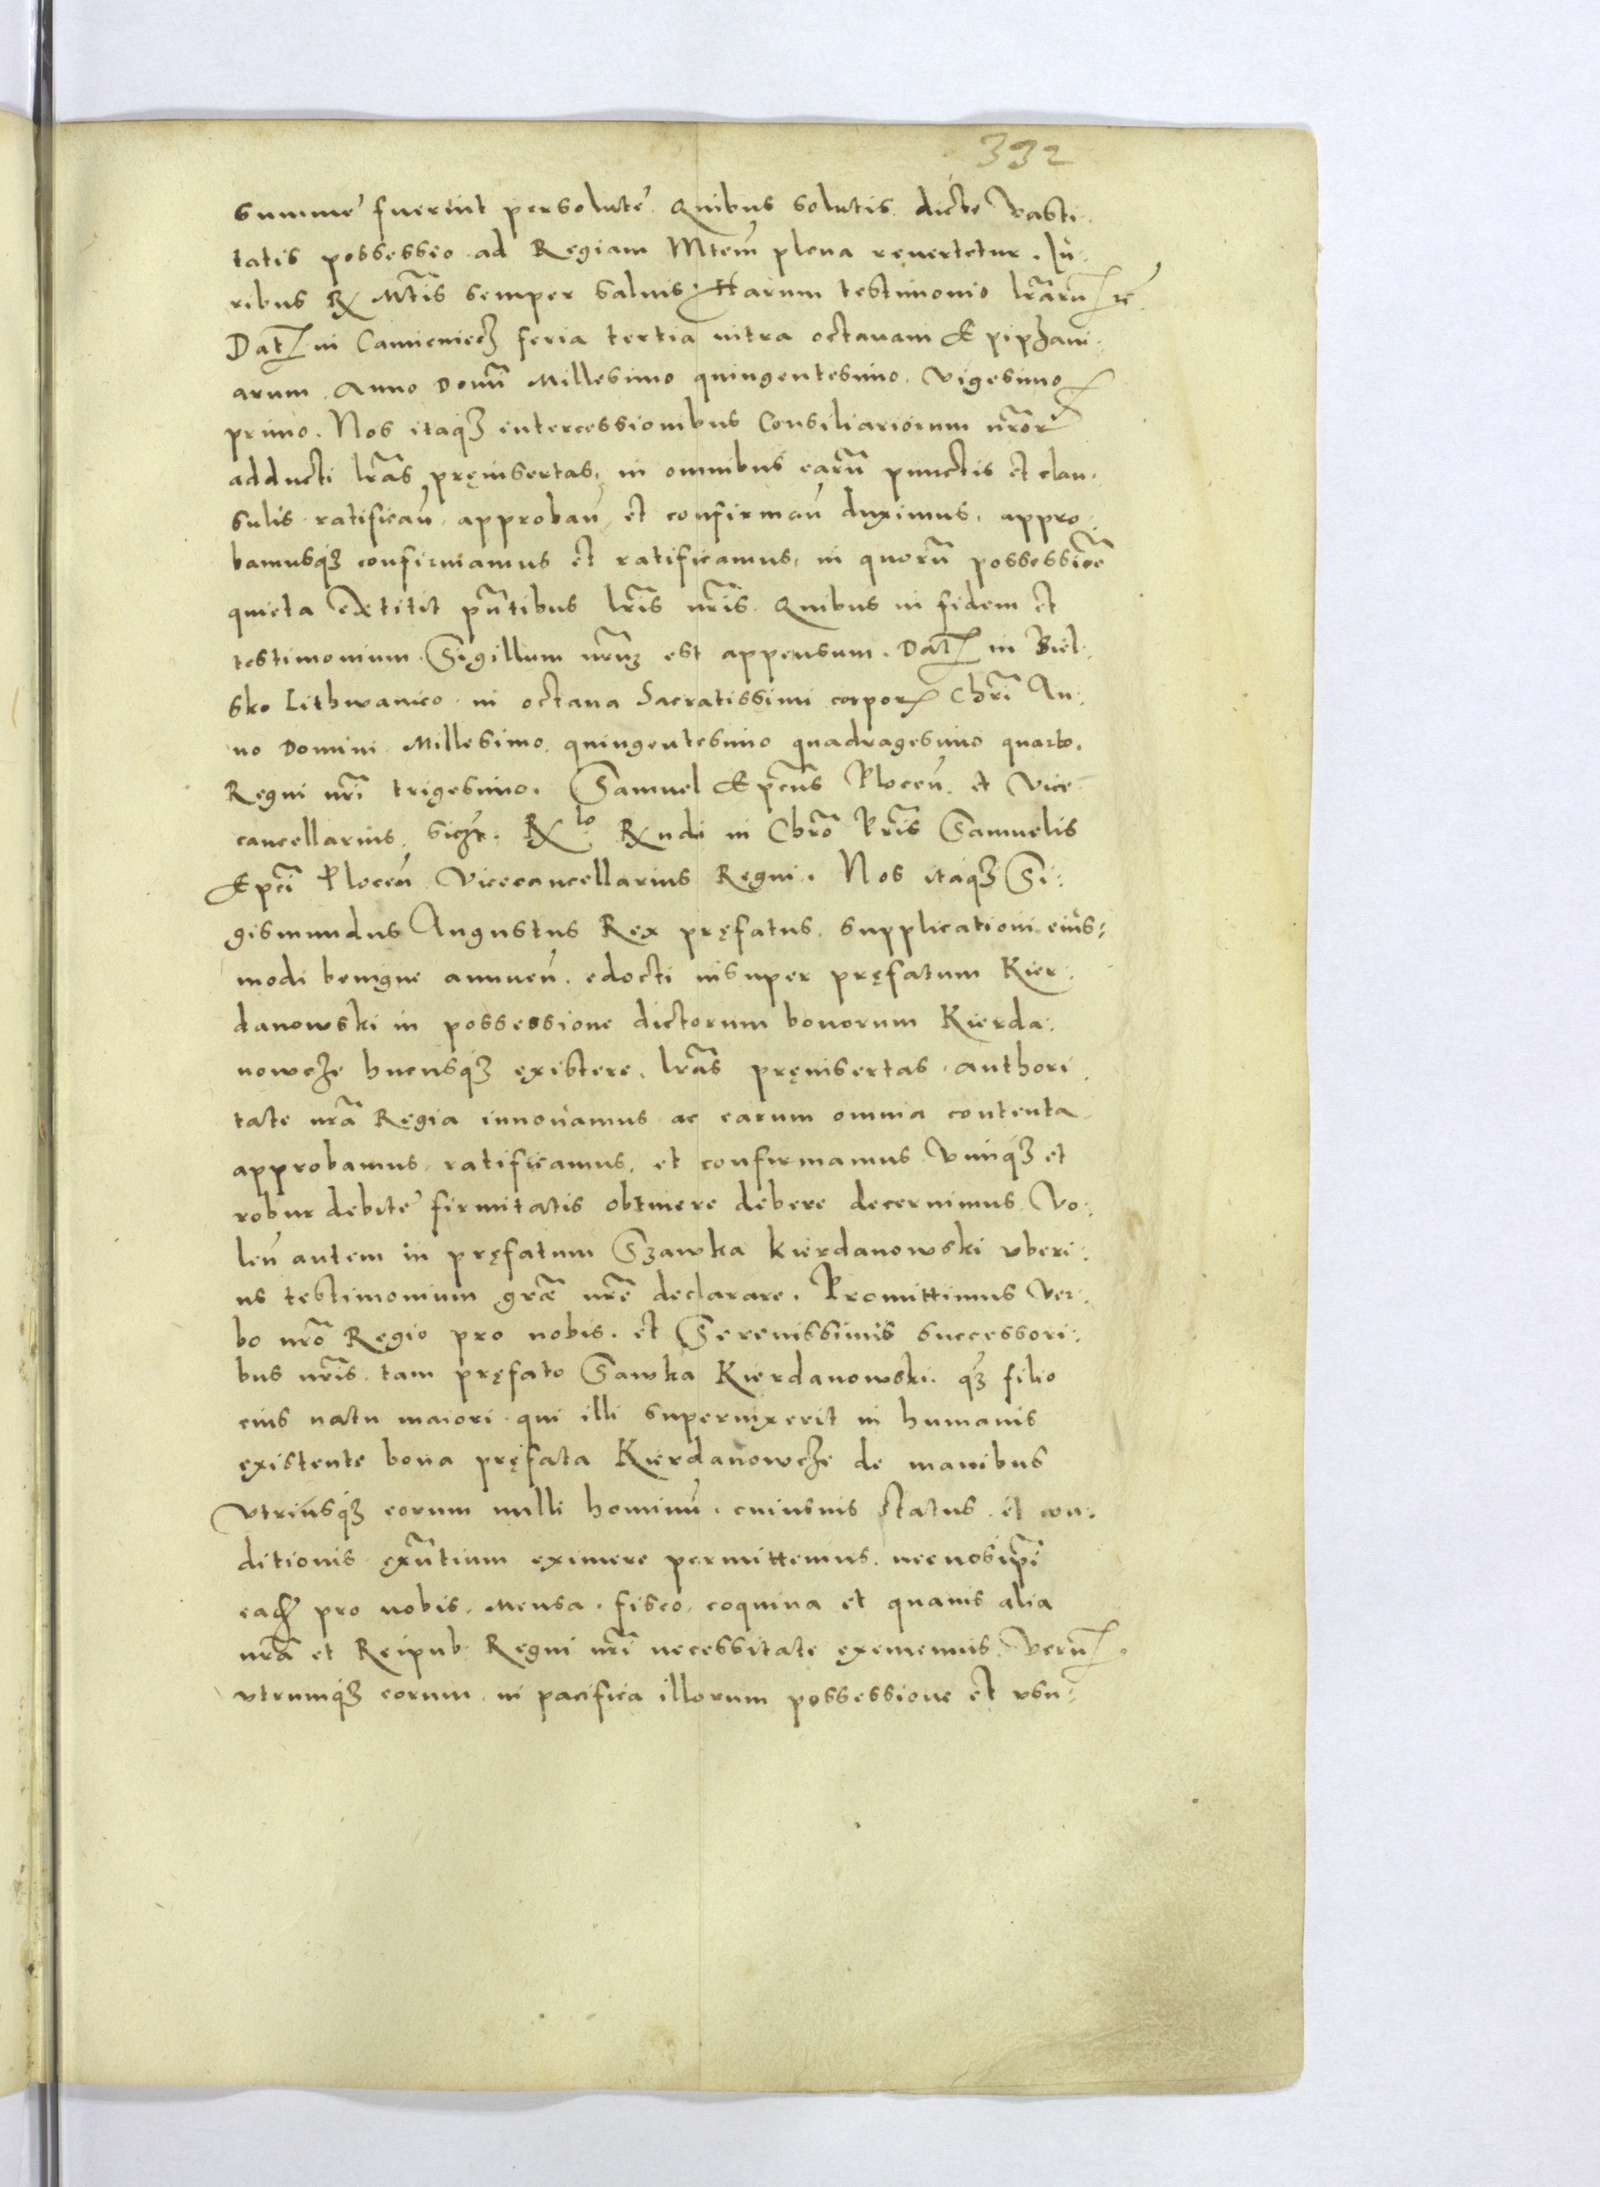 332
summe fuerint persolute. Quibus solutis dicte Vasti-
tatis possessio ad Regiam Mtem plena revertetur. Iu-
ribus Rx Mtis semper salvis. Harum testimonio lrarum re
Dat in Camieniecz feria tertia intra octavam Epiphani-
arum Anno Domi Millesimo quingentesimo. vigesimo
primo. Nos itaqz intercessionibus Consiliariorum nror
adducti lras preinsertas, in omnibus earu punctis et clau-
sulis ratifican approban et confirman duximus, appro-
bamusqz confirmamus et ratificamus, in quoru possessione
quieta extitit pntibus lris nris. Quibus in fidem et
testimonium Sigillum nrum est appensum. Dat in Biel-
sko Lithwanico in octava Sacratissimi corporis Chri An-
no Domini Millesimo quingentesimo quadragesimo quarto.
Regni nri trigesimo. Samuel Epcus Plocen. et Vice
cancellarius. Rx lo Rxndi in Chro Pris Samuelis
Epci Plocen Vicecancellarius Regni. Nos itaqz Si-
gismundus Augustus Rex prefatus, supplicationi eius-
modi benigne annuen. edocti insuper prefatum Kier-
danowski in possessione dictorum bonorum Kierda-
nowcze hucusqz existere. lras preinsertas authori
tate nra Regia innovamus ac earum omnia contenta
approbamus, ratificamus, et confirmamus Vimqz et
robur debite firmitatis obtinere debere decernimus. Vo-
len autem in prefatum Szawka Kierdanowski uberi-
us testimonium gre nre declarare. Promittimus Ver-
bo nro Regio pro nobis. et Serenissimis successori-
bus nris. tam prefato Sawka Kierdanowski. qz filio
eius natu maiori qui illi supervixerit in humanis
existente bona prefata Kierdanowcze de manibus
utriusqz eorum nulli hominu. cuiusvis status et con-
ditionis exntium eximere permittemus. nec nos ipsi
eadz pro nobis, Mensa, fisco, coquina et quavis alia
nra et Reipub Regni nri necessitate exememus. Veru
utrumqz eorum in pacifica illorum possessione et usu-